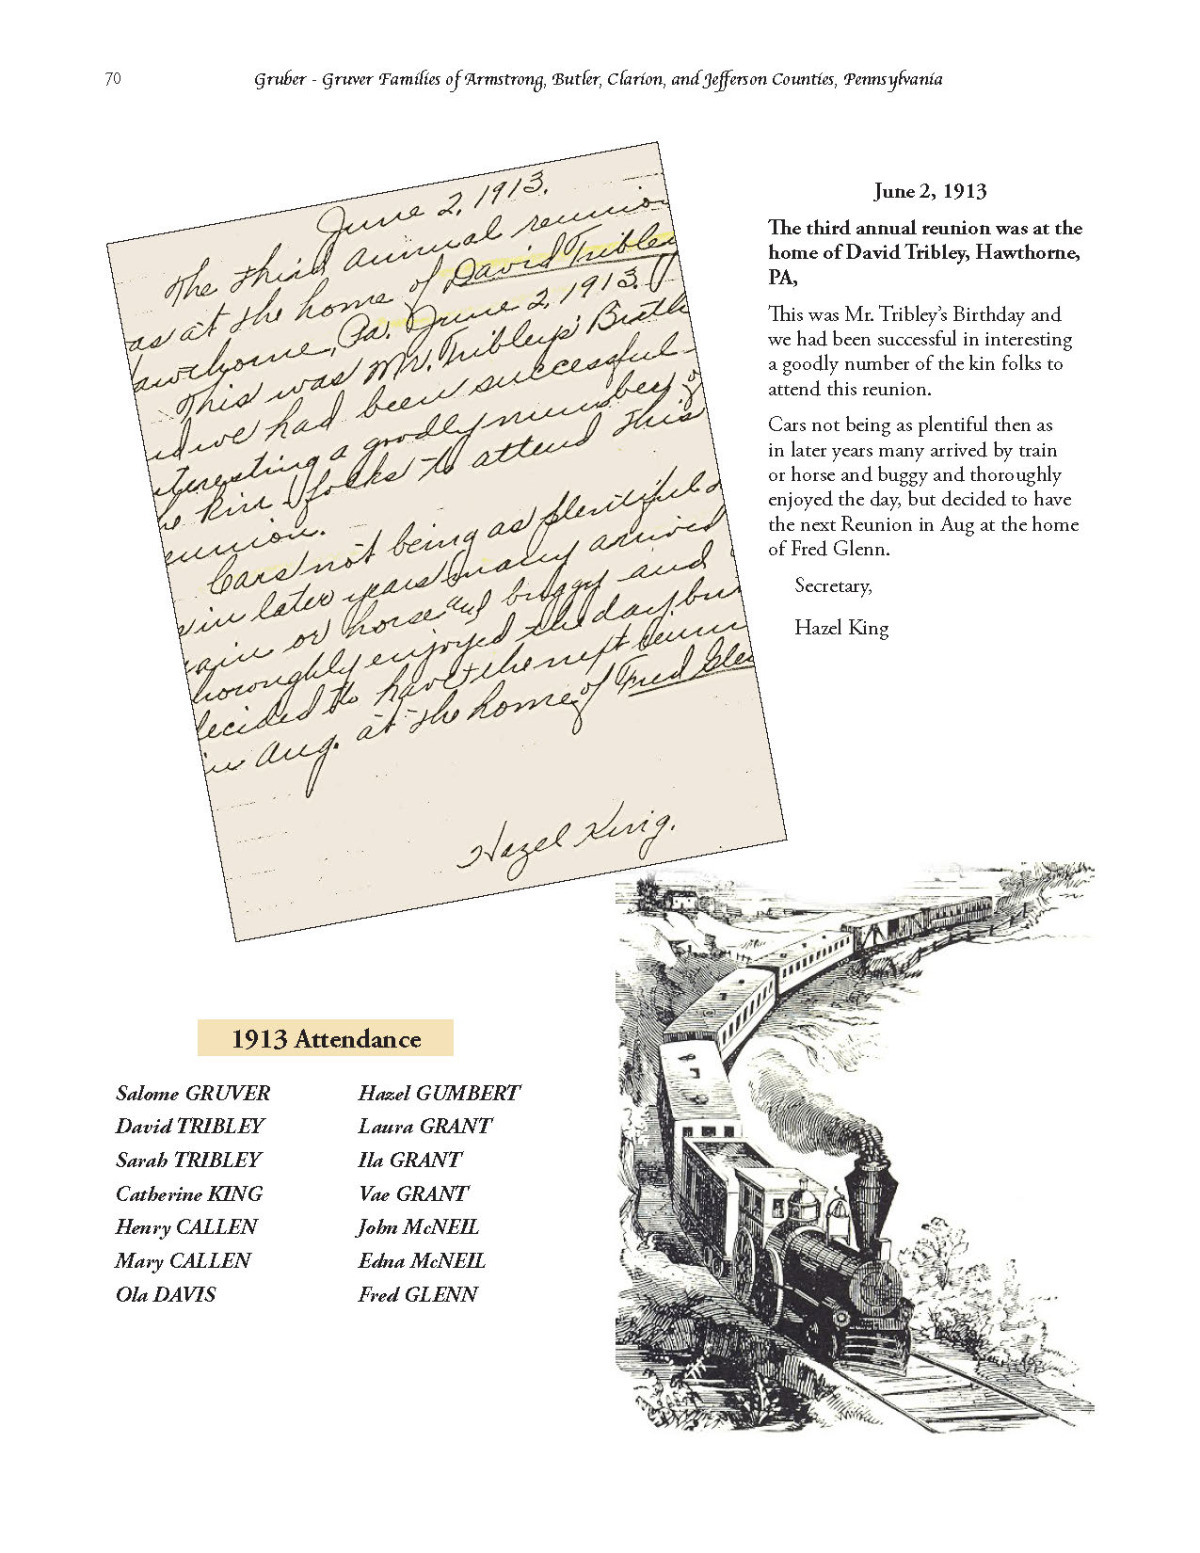 70
Gruber - Gruver Families of Armstrong, Butler, Clarion, and Jefferson Counties, Pennsylvania
June 2, 1913.
The third annual reunion
as at the home of David Tribley
awthorne, Pa. June 2, 1913.
This was Mr. Tribley's Birth
d we had been successful
teresting a goodly number of
e kin folks to attend this
eunion.
Cars not being as plentiful
in later years many arrived
rain or horse and buggy and
horoughly enjoyed the day bu
decided to have the next Reun
in Aug. at the home of Fred Glen
Hazel King.
June 2, 1913
The third annual reunion was at the
home of David Tribley, Hawthorne,
PA,
This was Mr. Tribley's Birthday and
we had been successful in interesting
a goodly number of the kin folks to
attend this reunion.
Cars not being as plentiful then as
in later years many arrived by train
or horse and buggy and thoroughly
enjoyed the day, but decided to have
the next Reunion in Aug at the home
of Fred Glenn.
Secretary,
Hazel King
1913 Attendance
Salome GRUVER
David TRIBLEY
Sarah TRIBLEY
Catherine KING
Henry CALLEN
Mary CALLEN
Ola DAVIS
Hazel GUMBERT
Laura GRANT
Ila GRANT
Vae GRANT
John McNEIL
Edna McNEIL
Fred GLENN